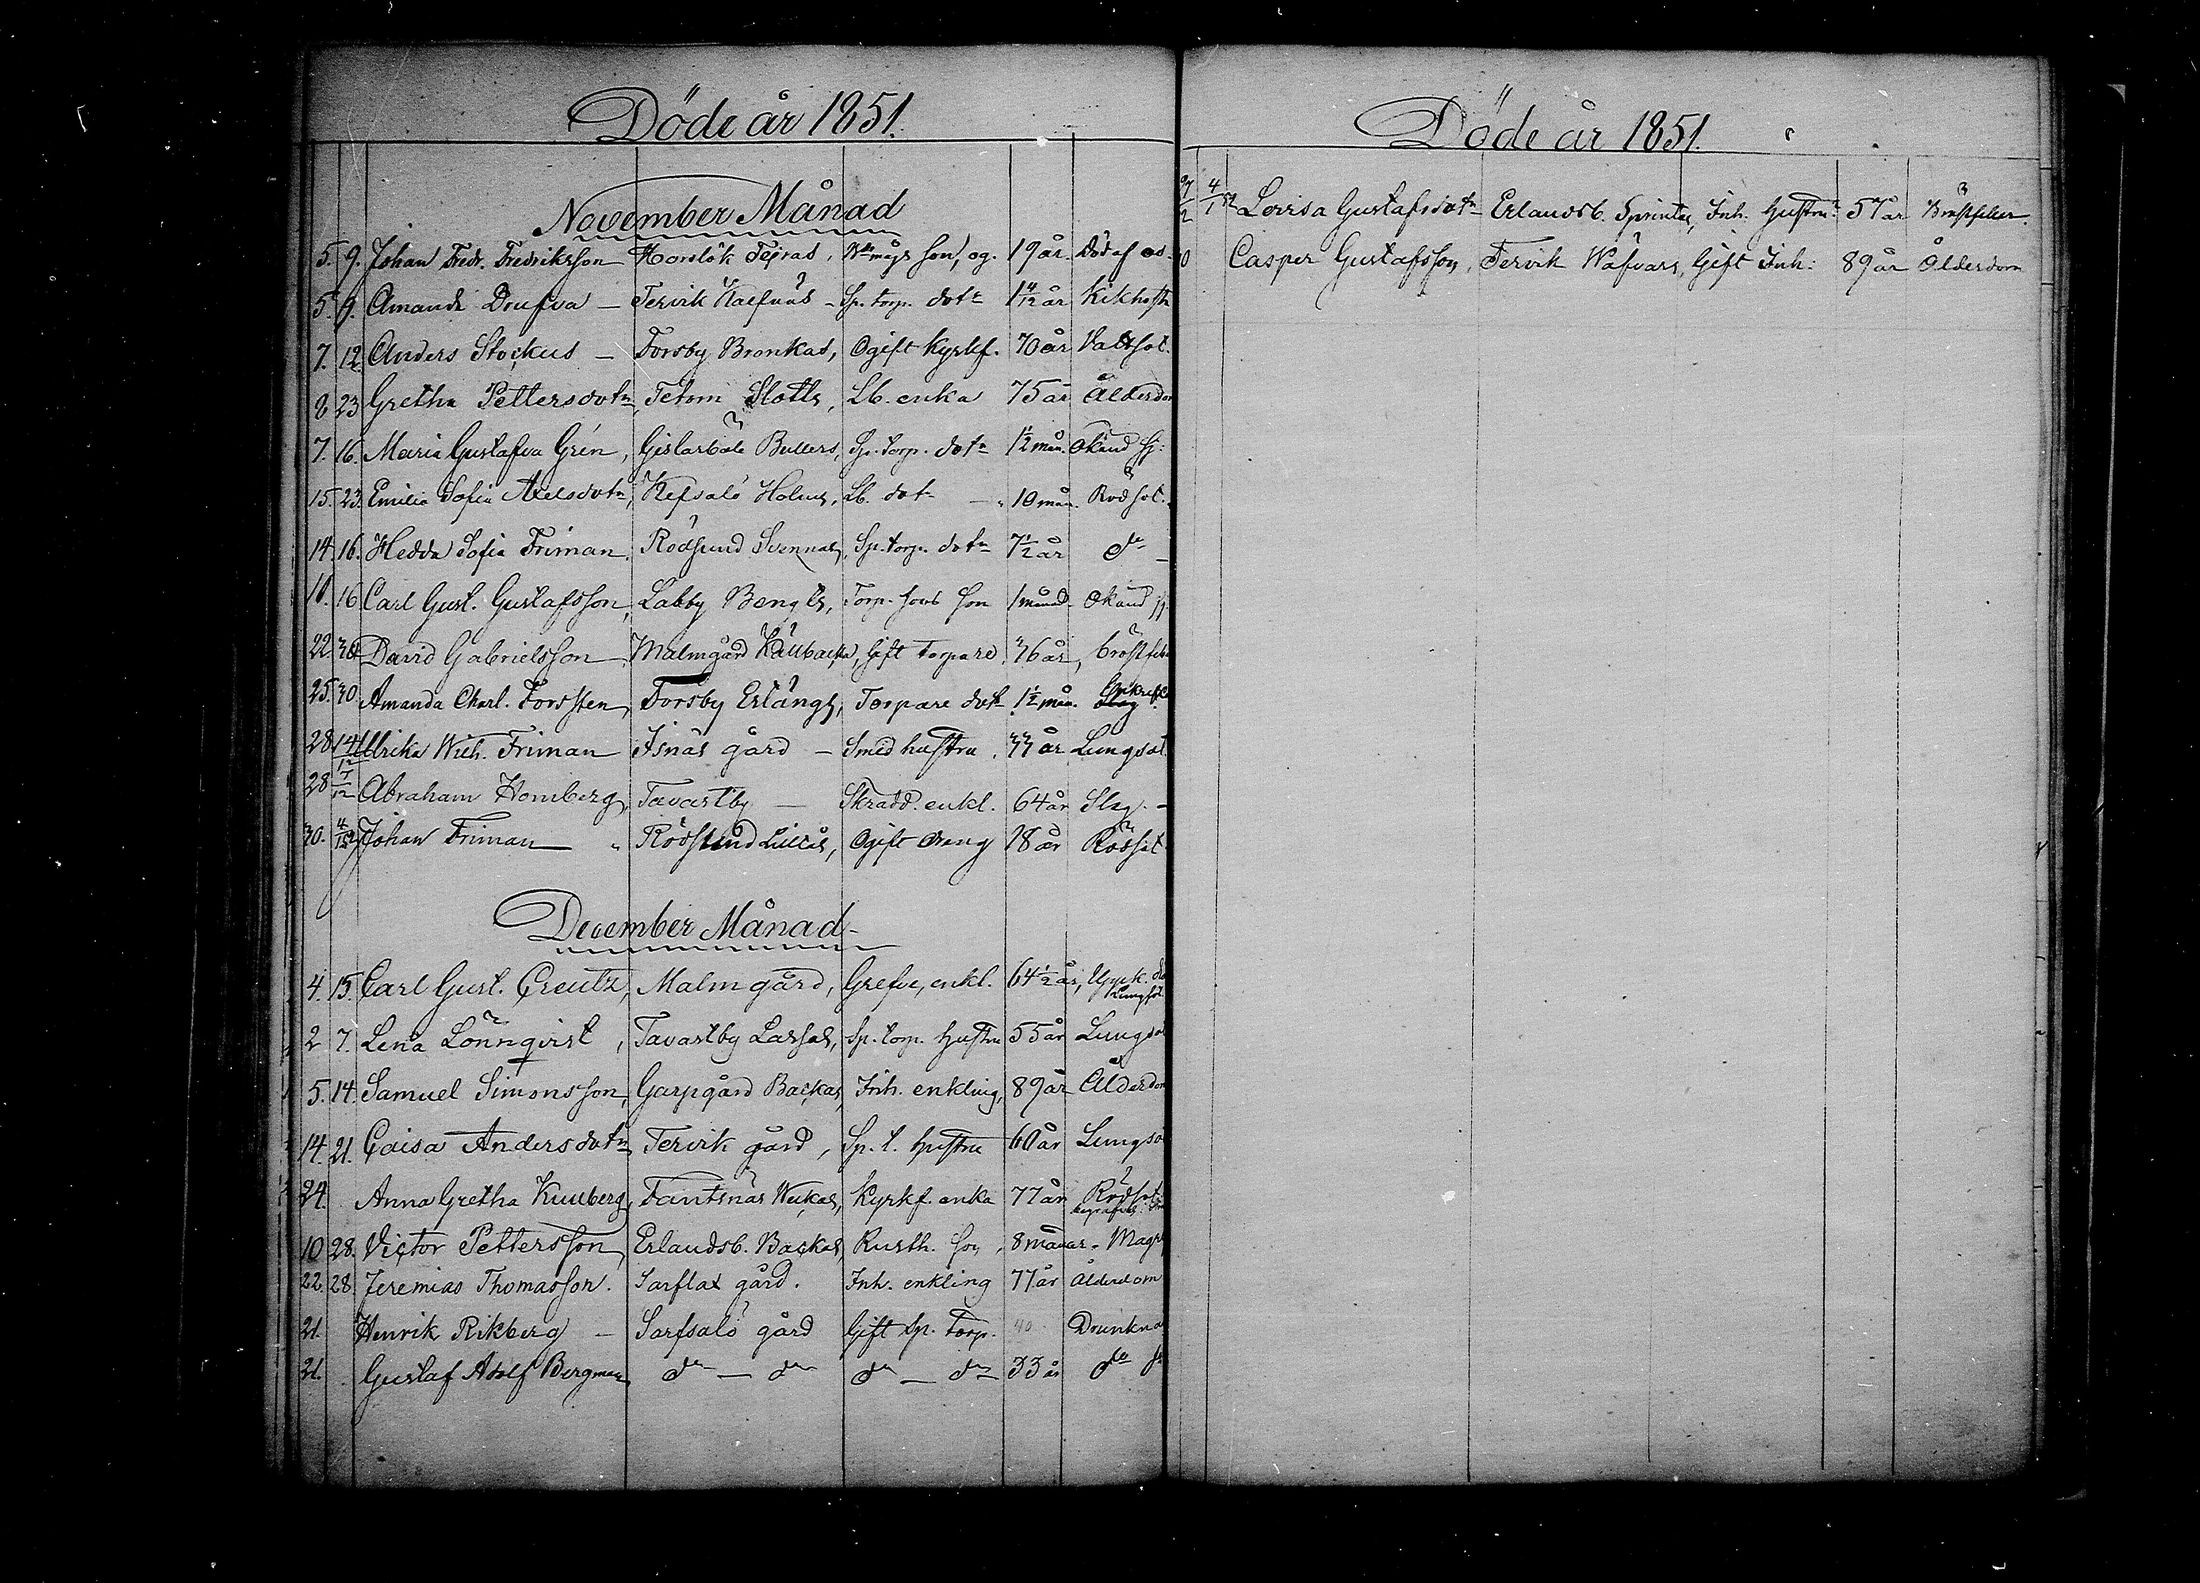 Döde år 1851.
November Månad
5. 9. Johan Fredr. Fredriksson Horslök Tejras, son, og. 19 år. Död af
5. 9. Amanda Doufva — Tervik Räfnäs - Sp. torp. dotr 1 4/12 år Kikhosta
7. 12 Anders Stockus — Forsby Bronkas, Ogift Kyrkf. 70 år Vattsot.
8 23 Gretha Pettersdotr, Tetom Slotts, Lb. enka 75 år Ålderdom
7. 16. Maria Gustafva Grén, Gislarböle Bullers, Sp. torp. dotr 1/2 mån. Okänd sj:
15. 23. Emilia Sofia Axelsdotr, Kefsalö Holms, Lb. dotr — 10 mån. Rödsot.
14. 16. Hedda Sofia Friman, Rödsund Svennas, Sp. torp. dotr 7 1/2 år do —
11. 16 Carl Gust. Gustafsson, Labby Bengts, Torp. sons son 1 månad. Okänd sj.
22 30 David Gabrielsson Malmgård Källbacka, Gift torpare, 36 år, bröstfeber
25. 30. Amanda Charl. Forssten, Forsby Erlängs, Torpare dotr 1 1/2 mån.
28 14/12 Ulrika Wilh. Friman Isnäs gård — Smed hustru, 33 år Lungsot.
28 7/12 Abraham Homberg, Tavastby — Skradd. enkl. 64 år Slag. —
30. 4/1 52 Johan Friman — " Rödsund Lillas, Ogift dreng 18 år Rödsot
December Månad
4. 15. Carl Gust. Creutz, Malmgård, Grefve, enkl. 64 1/2 år,
Lungsot
2 7. Lena Lönnqvist, Tavastby Lassas, Sp. torp. hustru 55 år Lungsot
5. 14. Samuel Simonsson, Garpgård Backas, Inh. enkling, 89 år Ålderdom
14. 21. Caisa Andersdotr Tervik gård, Sp. t. hustru 60 år Lungsot
24. Anna Gretha Kullberg, Fantsnäs Weckas, Kyrkf. enka 77 år Rödsot
10 28. Victor Pettersson, Erlandsb. Backas, Rusth. son, 8 månar.
22. 28. Jeremias Thomasson. Sarflax gård. Inh. enkling 77 år Ålderdom
21. Henrik Rikberg — Sarfsalö gård Gift Sp. Torp. 40 Drunknad
21. Gustaf Adolf Bergman do — do do — do 33 år do do
Döde år 1851.
4/1 52 Lovisa Gustafsdotr Erlandsb. Sprintas, Inh. hustru 57 år Bröstfeber.
Casper Gustafsson, Tervik Wäfvars, Gift Inh: 89 år Ålderdom